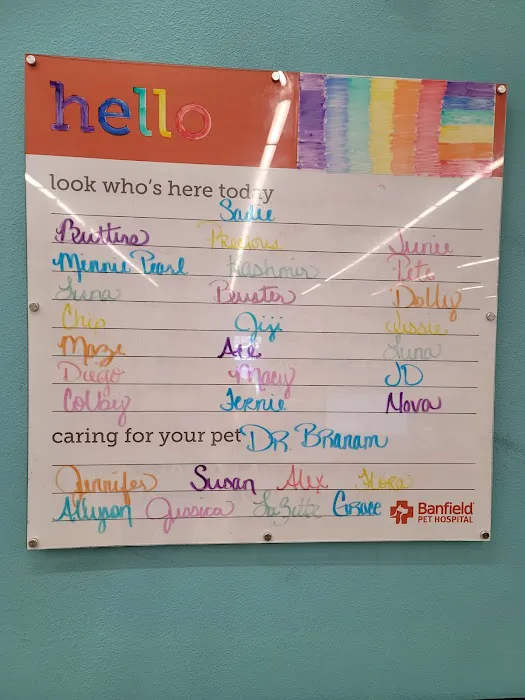 hello
look who's here today
Sadie
Buttons Precious Junie
Minnie Pearl Kashmir Pete
Luna Buster Dolly
Chip Jiji Jessie
Maze Ace Luna
Diego Macy JD
Colby Fernie Nova
caring for your pet DR. Branam
Jennifer Susan Alex Flora
Allyson Jessica Grace
Banfield
PET HOSPITAL